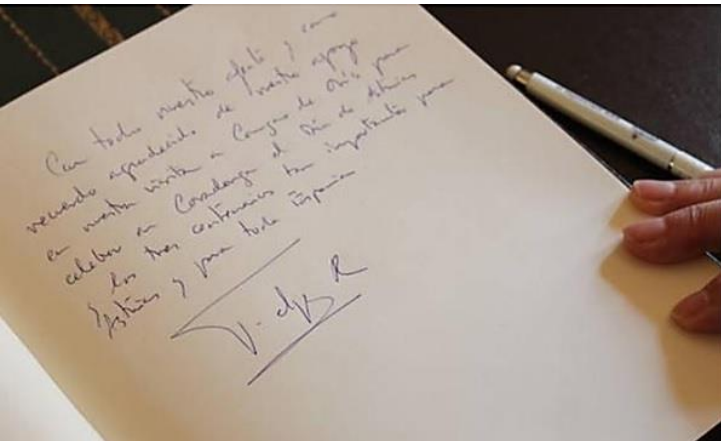 Con todo nuestro afecto y como
recuerdo agradecido de vuestro apoyo
en nuestra visita a Cangas de Onís para
celebrar en Covadonga el Día de Asturias
y los tres centenarios tan importantes para
Asturias y para toda España
R